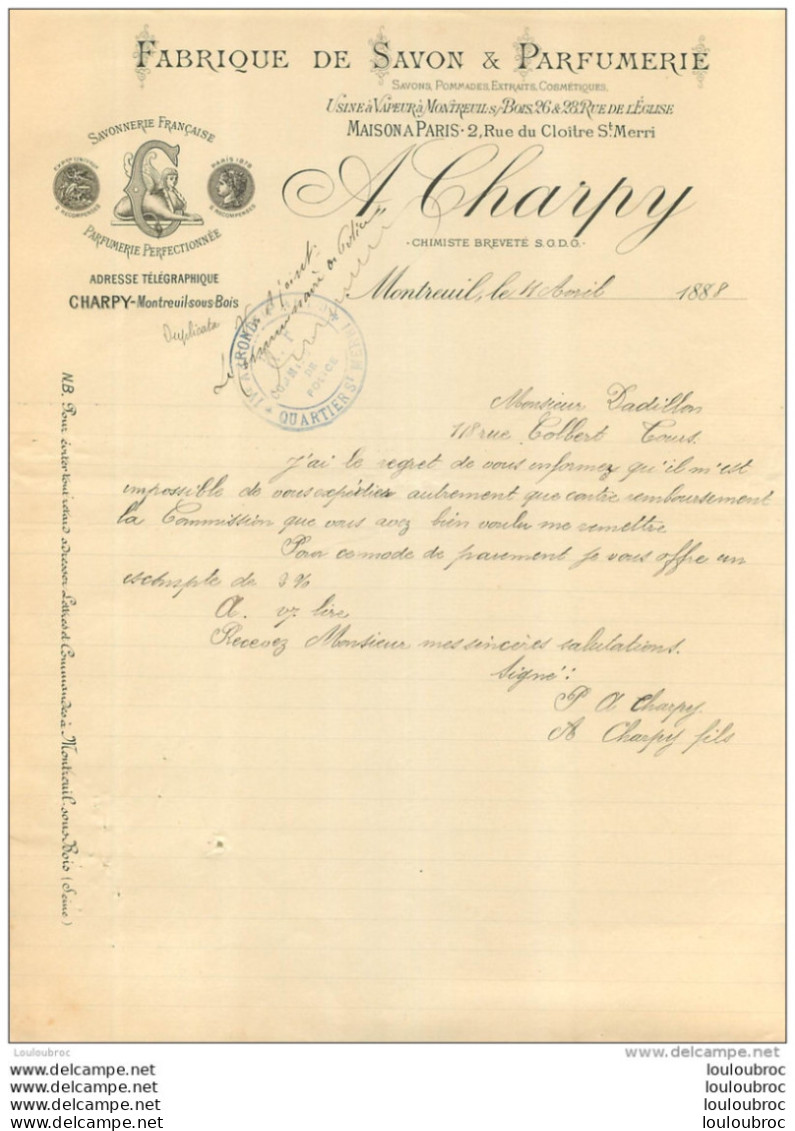 FABRIQUE DE SAVON & PARFUMERIE
SAVONS, POMMADES, EXTRAITS, COSMÉTIQUES,
USINE à VAPEUR à MONTREUIL s/ BOIS, 26 & 28, RUE DE L'ÉGLISE
MAISON A PARIS · 2, Rue du Cloître St Merri
SAVONNERIE FRANÇAISE
PARIS 1878
2 RECOMPENSES
2 RECOMPENSES
C
PARFUMERIE PERFECTIONNÉE
A Charpy
· CHIMISTE BREVETÉ S.G.D.G. ·
ADRESSE TÉLÉGRAPHIQUE
CHARPY-Montreuil-sous-Bois
Duplicata
Montreuil, le 11 Avril 1888
IV ARROND
COMMIS
DE
POLICE
QUARTIER ST MERRI
Monsieur Dadillon
118 rue Colbert Tours.
J'ai le regret de vous informez qu'il m'est
impossible de vous expédier autrement que contre remboursement
la Commission que vous avez bien voulu me remettre
Pour ce mode de paiement je vous offre un
escompte de 3 %
A. vz lire
Recevez Monsieur mes sincères salutations.
Signé :
P A Charpy.
A Charpy fils
NB. Pour éviter tout retard adresser Lettres et Commandes à Montreuil-sous-Bois (Seine)
Louloubroc
delcampe.net
louloubroc
louloubroc
louloubroc
louloubroc